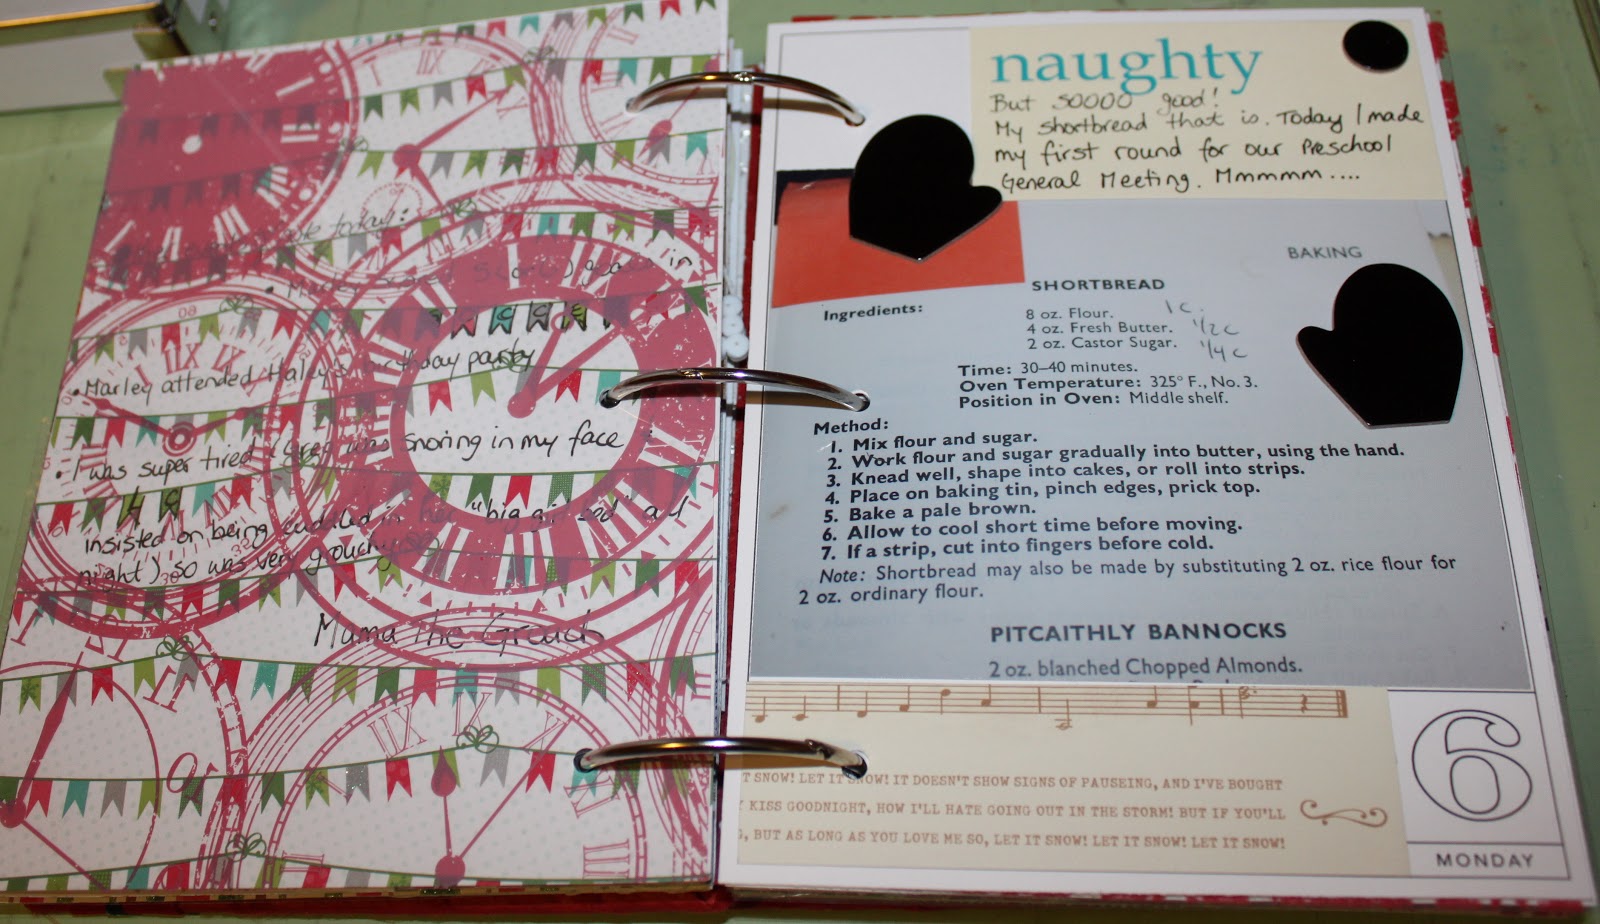 today:
• Marley scored 5 (or 6) goals in
• Marley attended Haley's birthday party
• I was super tired (Gren was snoring in my face
insisted on being cuddled in her "big girl bed" all
night) so was very grouchy
Mama the Grouch
naughty
But soooo good!
My shortbread that is. Today I made
my first round for our Preschool
General Meeting. Mmmmm....
BAKING
SHORTBREAD
Ingredients:
8 oz. Flour. 1 c.
4 oz. Fresh Butter. 1/2 c
2 oz. Castor Sugar. 1/4 c
Time: 30–40 minutes.
Oven Temperature: 325° F., No. 3.
Position in Oven: Middle shelf.
Method:
1. Mix flour and sugar.
2. Work flour and sugar gradually into butter, using the hand.
3. Knead well, shape into cakes, or roll into strips.
4. Place on baking tin, pinch edges, prick top.
5. Bake a pale brown.
6. Allow to cool short time before moving.
7. If a strip, cut into fingers before cold.
Note: Shortbread may also be made by substituting 2 oz. rice flour for
2 oz. ordinary flour.
PITCAITHLY BANNOCKS
2 oz. blanched Chopped Almonds.
T SNOW! LET IT SNOW! IT DOESN'T SHOW SIGNS OF PAUSEING, AND I'VE BOUGHT
KISS GOODNIGHT, HOW I'LL HATE GOING OUT IN THE STORM! BUT IF YOU'LL
, BUT AS LONG AS YOU LOVE ME SO, LET IT SNOW! LET IT SNOW! LET IT SNOW!
6
MONDAY